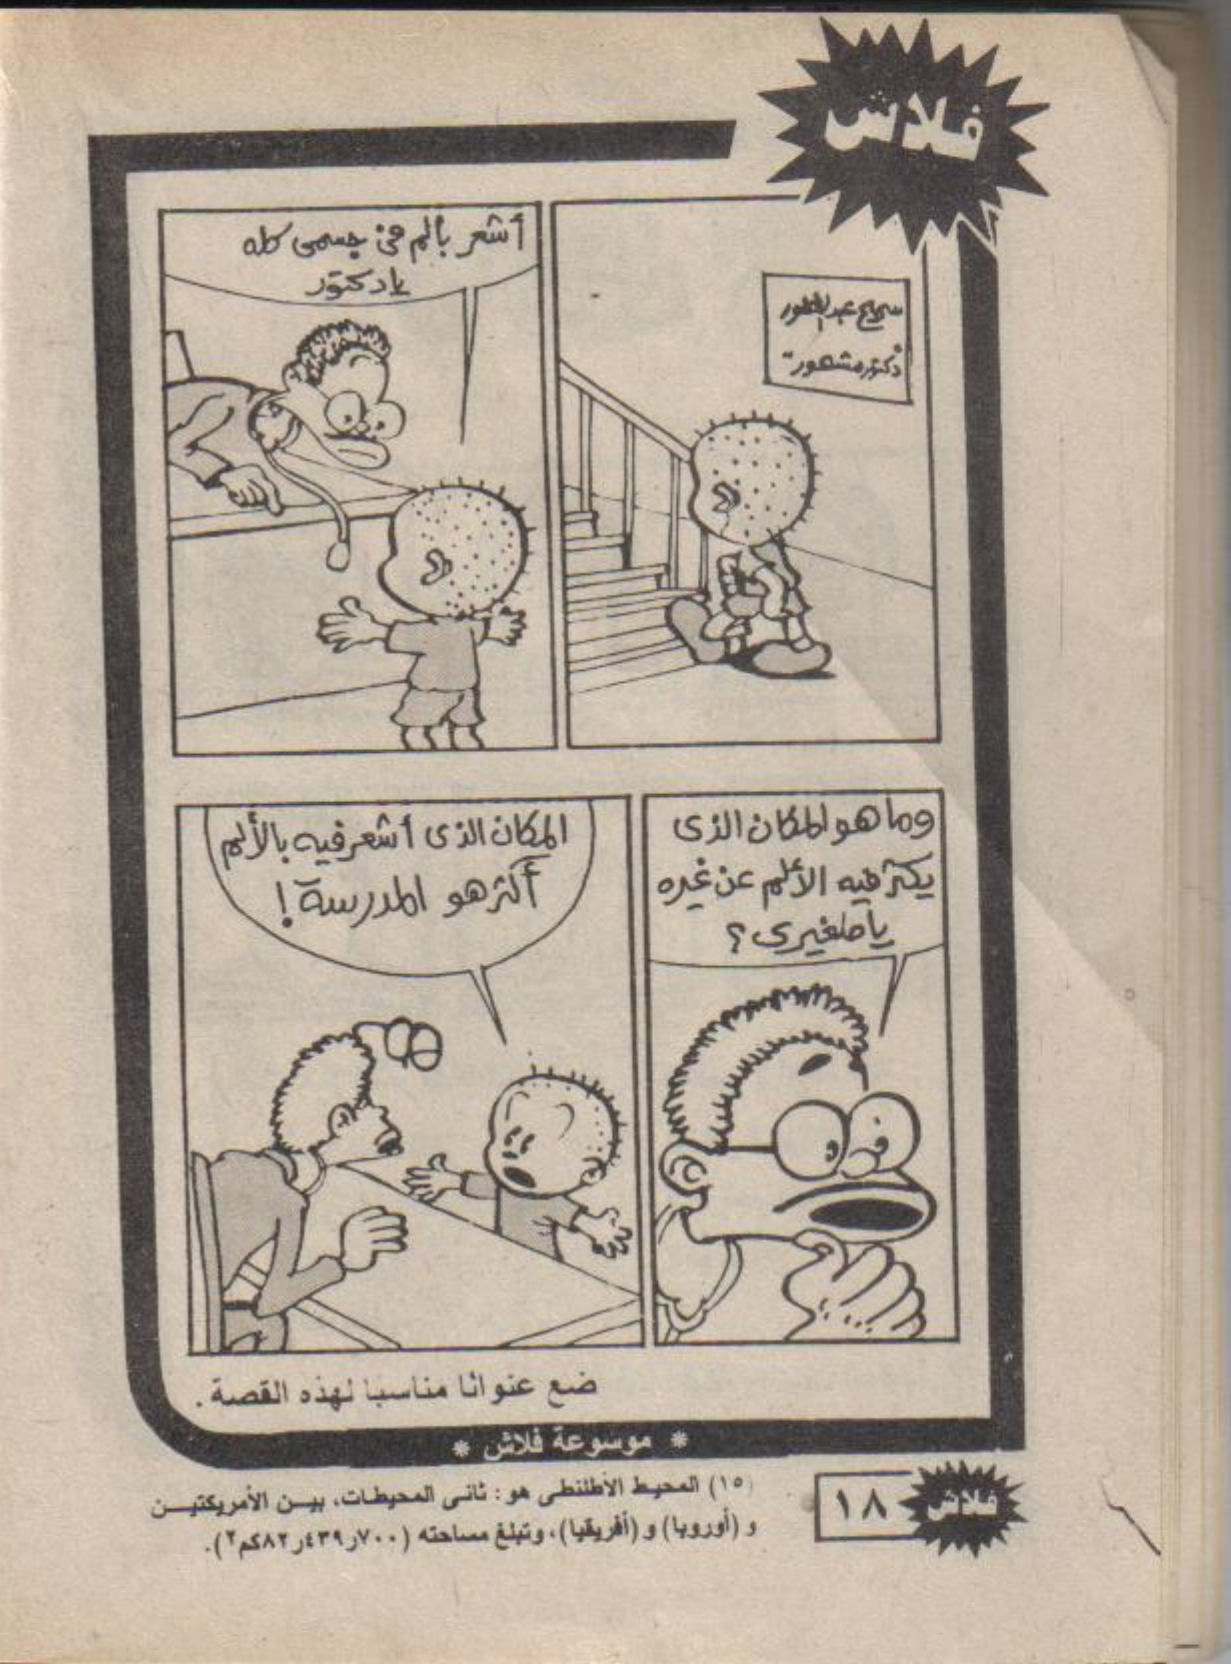 فلاش
سميح عبد الغفور
دكتور مشهور
أشعر بألم فى جسمى كله
يا دكتور
وما هو المكان الذى
يكثر فيه الألم عن غيره
يا صغيرى ؟
المكان الذى أشعر فيه بالألم
أكثر هو المدرسة !
ضع عنوانا مناسبا لهذه القصة .
* موسوعة فلاش *
(١٥) المحيط الأطلنطى هو : ثانى المحيطات، بيـن الأمريكتيـن
و (أوروبا) و (أفريقيا)، وتبلغ مساحته (٧٠٠ر٤٣٩ر٨٢كم٢).
١٨
فلاش